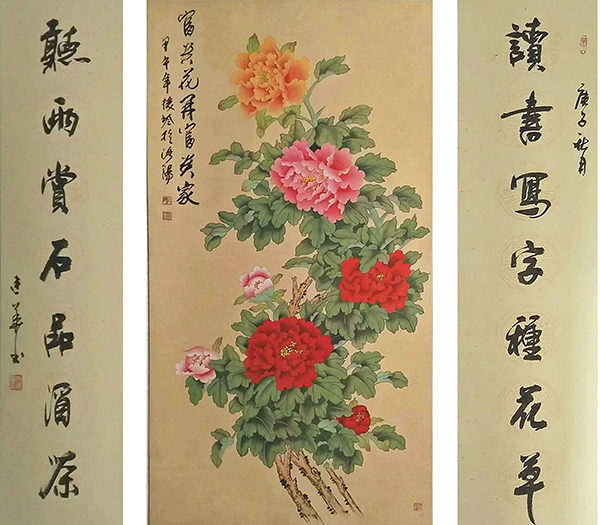 讀書寫字種花草
庚子秋月
富貴花開富貴家
甲午年 於洛陽
聽雨賞石品湄茶
華書